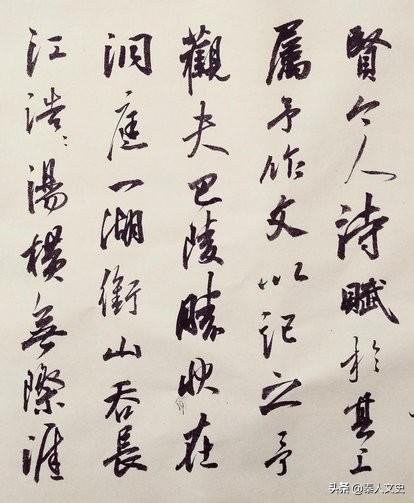 賢今人詩賦於其上
屬予作文以記之予
觀夫巴陵勝状在
洞庭一湖銜山吞長
江浩〻湯橫無際涯
头条 @秦人文史